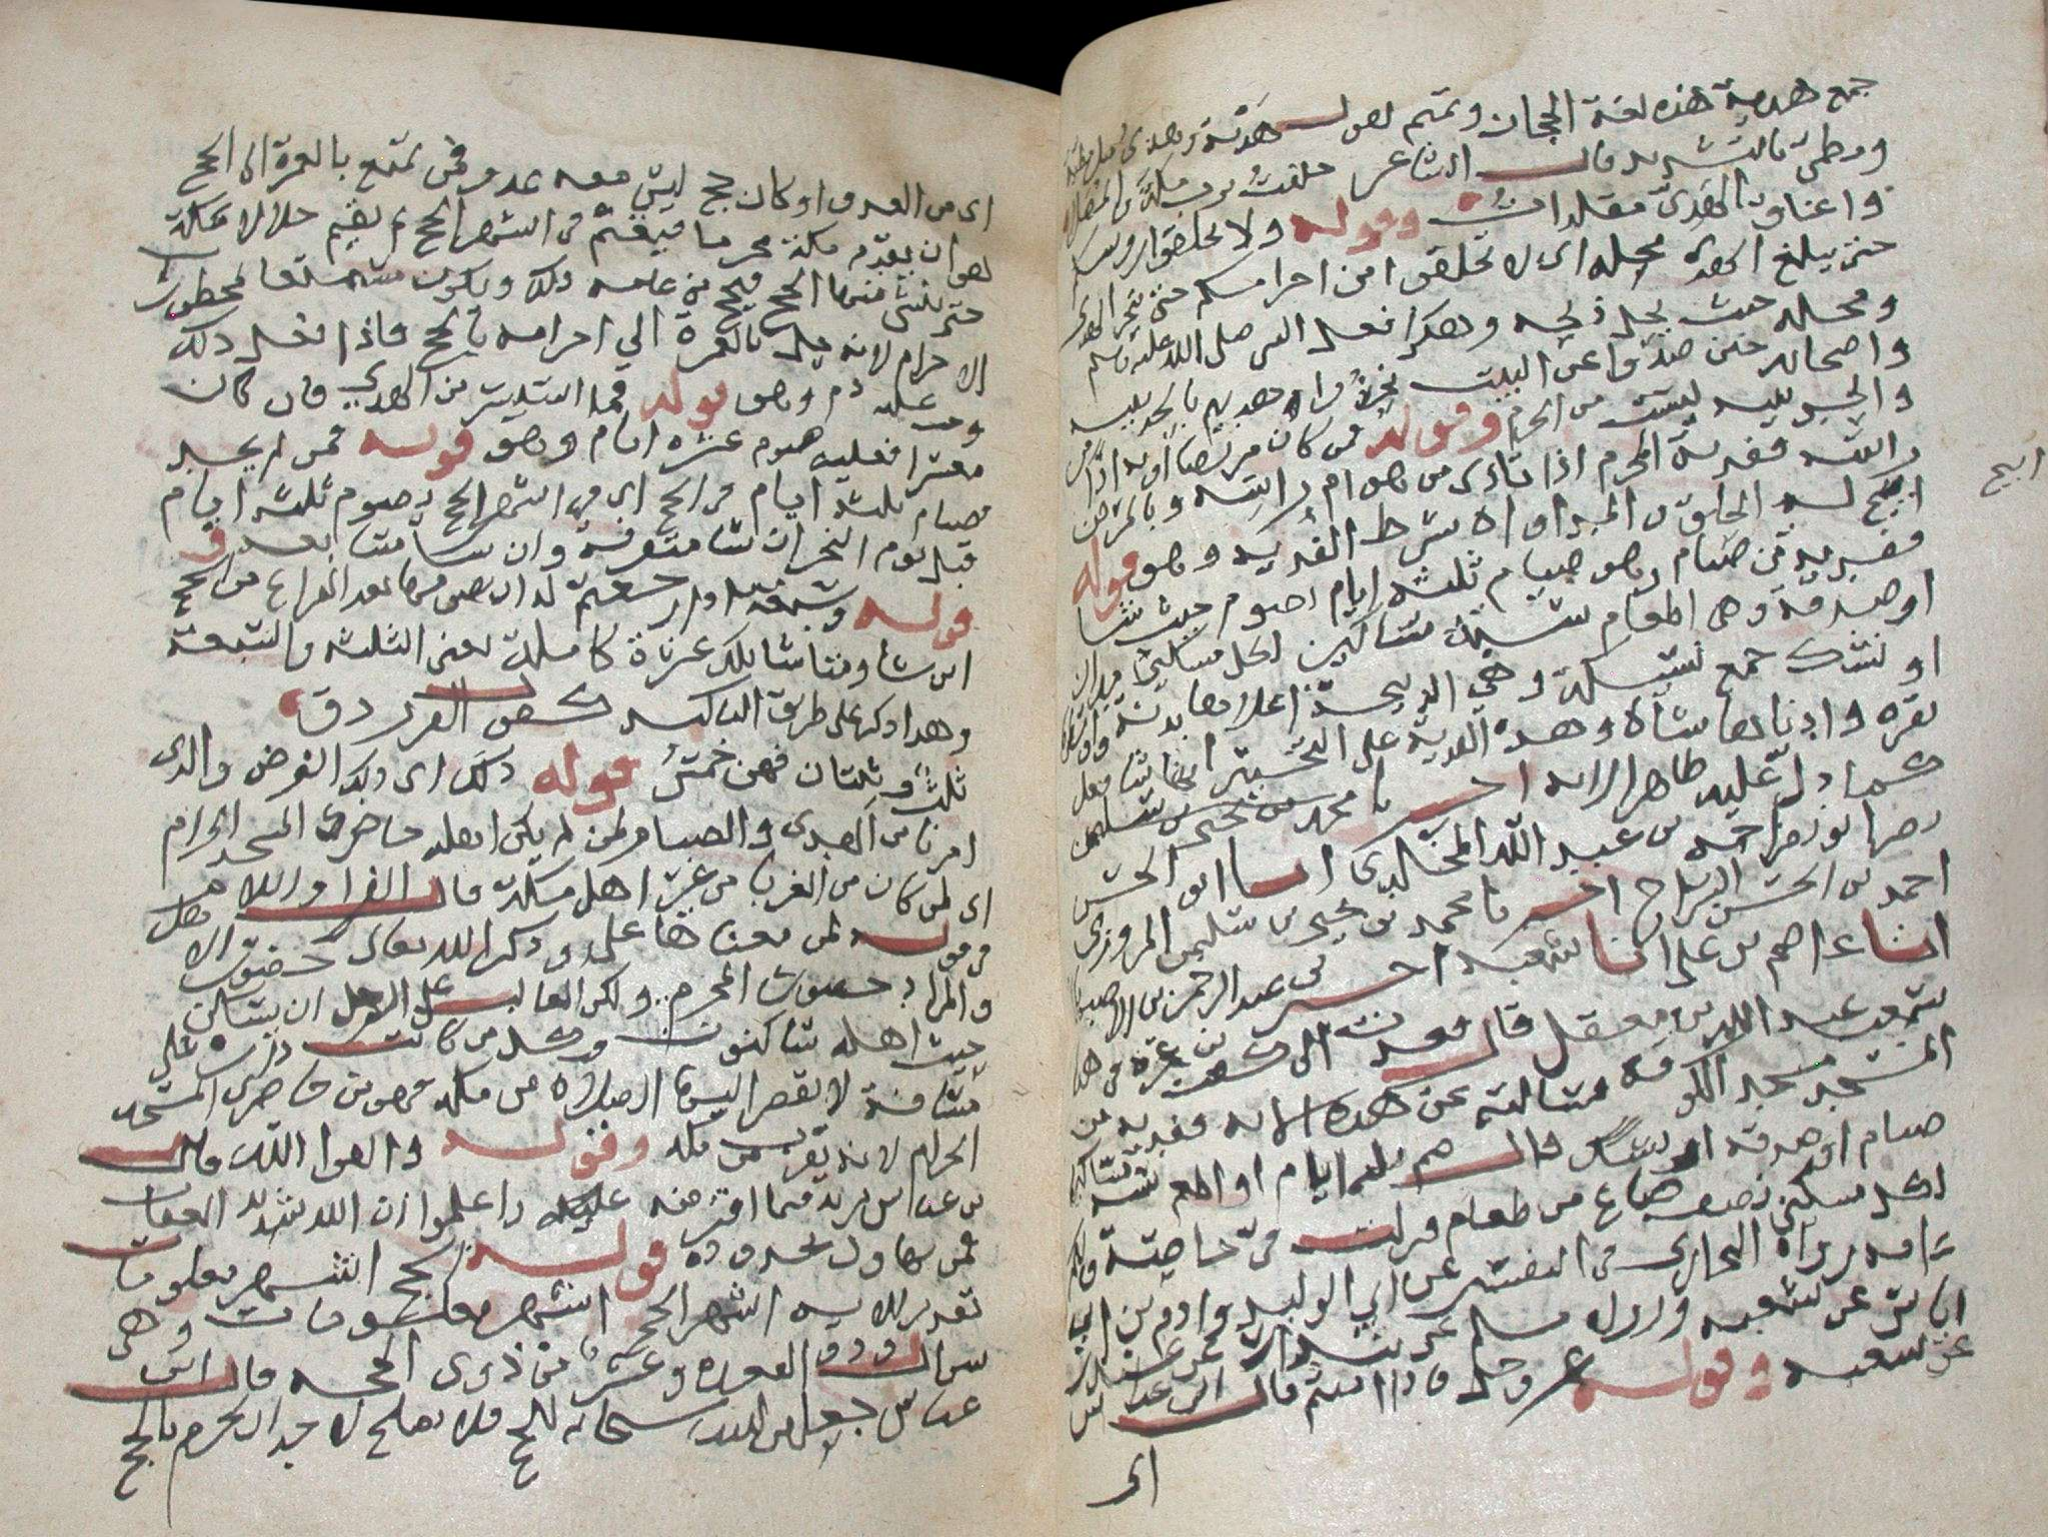 جمع هدية هذه لغة الحجاز وتميم يقول هديّة وهدى مثل مطيّة
ومطيّ بالتشديد قال الشاعر حلفت برب مكة والمصلّى
واعناق الهديّ مقلدات وقوله ولا تحلقوا روسكم
حتى يبلغ الهدى محله اى لا تحلقوا من احرامكم حتى ينحر الهدى
ومحله حيث يحل ذبحه وهكذا فعل النبى صلى الله عليه وسلم
واصحابه حين صدّوا عن البيت نحروا هديهم بالحديبيه
والحديبيه ليست من الحرم وقوله فمن كان مريضا او به اذًا من
راسه ففدية المحرم اذا تاذى من هوام راسه وبالمرض
ابيح له الحلق والمداواه بشرط الفديه وهو قوله
ابيح
ففدية من صيام وهو صيام ثلثه ايام يصوم حيث شا
او صدقة وهى اطعام ستة مساكين لكل مسكين مدان
او نسك جمع نسيكة وهي الذبيحة اعلاها بدنة واوسطها
بقره وادناها شاة وهذه الفدية على التخيير ايها شا فعل
كما دلّ عليه ظاهر الايه اخبرنا محمد بن يحيى بن سليمن
احمد بن الحسن السراج اخبرنا محمد بن يحيى بن سليمن المروزى
انبا عاصم بن على انبا شعبه اخبرنى عبد الرحمن بن الاصبهانى
سمعت عبد الله بن معقل قال قعدت الى كعب بن عجره فى هذا
المسجد مسجد الكوفة فسالته عن هذه الايه ففدية من
صيام او صدقة او نسك قال صم ثلثه ايام او اطعم ستة مساكين
لكل مسكين نصف صاع من طعام فنزلت فىّ خاصّة ولكم
عامه رواه البخارى فى التفسير عن ابي الوليد وادم بن ابى
اياس عن شعبه ورواه مسلم عن بندار عن غندر
عن شعبه وقوله عز وجل فاذا امنتم قال ابن عباس
اى
اى من العدو او كان حج ليس معه عدو فمن تمتع بالعمرة الى الحج
هو ان يقدم مكة محرما فيعتمر فى اشهر الحج ثم يقيم حلالا بمكة
حتى ينشئ منها الحج فيحج من عامه ذلك ويكون مستمتعا بمحظورات
الاحرام لانه حل بالعمرة الى احرامه بالحج فاذا فعل ذلك
وجب عليه دم وهو قوله فما استيسر من الهدي فان كان
معسرا فعليه صوم عشرة ايام وهو قوله فمن لم يجد
فصيام ثلثة ايام فى الحج اى في اشهر الحج يصوم ثلثه ايام
قبل يوم النحر ان شا متفرقة وان شا متتابعه وفى
قوله وسبعة اذا رجعتم له ان يصومها بعد الفراغ من الحج
اين شا ومتا شا تلك عشرة كاملة يعنى الثلثه والسبعة
وهذا ذكر على طريق التاكيد كقول الفرزدق
ثلث وثنتان فهن خمس قوله ذلك اى ذلك الفرض والذى
امرنا من الهدى والصيام لمن لم يكن اهله حاضرى المسجد الحرام
اى لمن كان من الغربا من غير اهل مكة قال الفرا واللام
فى قوله لمن معناها على وذكر الله تعالى حضور الاهل
والمراد حضور المحرم ولكن الغالب على الرجل ان يسكن
حيث اهله ساكنون وكل من كانت داره على
مسافة لا يقصر اليها الصلاه من مكه فهو من حاضرى المسجد
الحرام لانه يقرب من مكه وقوله واتقوا الله قال
بن عباس يريد فيما افترضه عليكم واعلموا ان الله شديد العقاب
لمن تهاون بحدوده قوله الحج اشهر معلومات
تقدير الايه اشهر الحج اشهر معلومات وهى
شوال وذو القعده وعشر من ذوى الحجه قال ابن
عباس جعلهن الله سبحانه للحج فلا يصلح لاحد ان يحرم بالحج